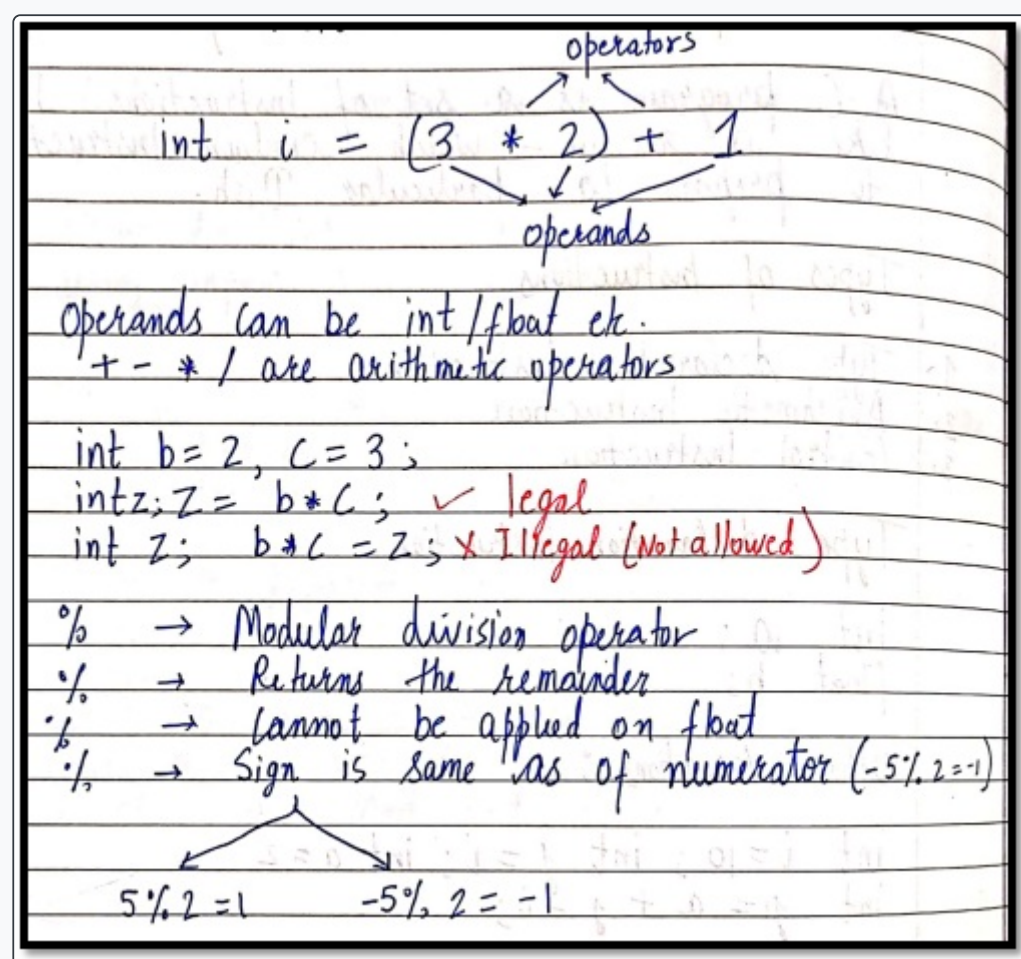 operators
int i = (3 * 2) + 1
operands
Operands can be int/float etc.
+ - * / are arithmetic operators
int b = 2, c = 3;
int z; z = b*c; ✓ legal
int z; b*c = z; X Illegal (Not allowed)
% → Modular division operator
% → Returns the remainder
% → Cannot be applied on float
% → Sign is same as of numerator (-5%2=-1)
5%2=1 -5%2=-1